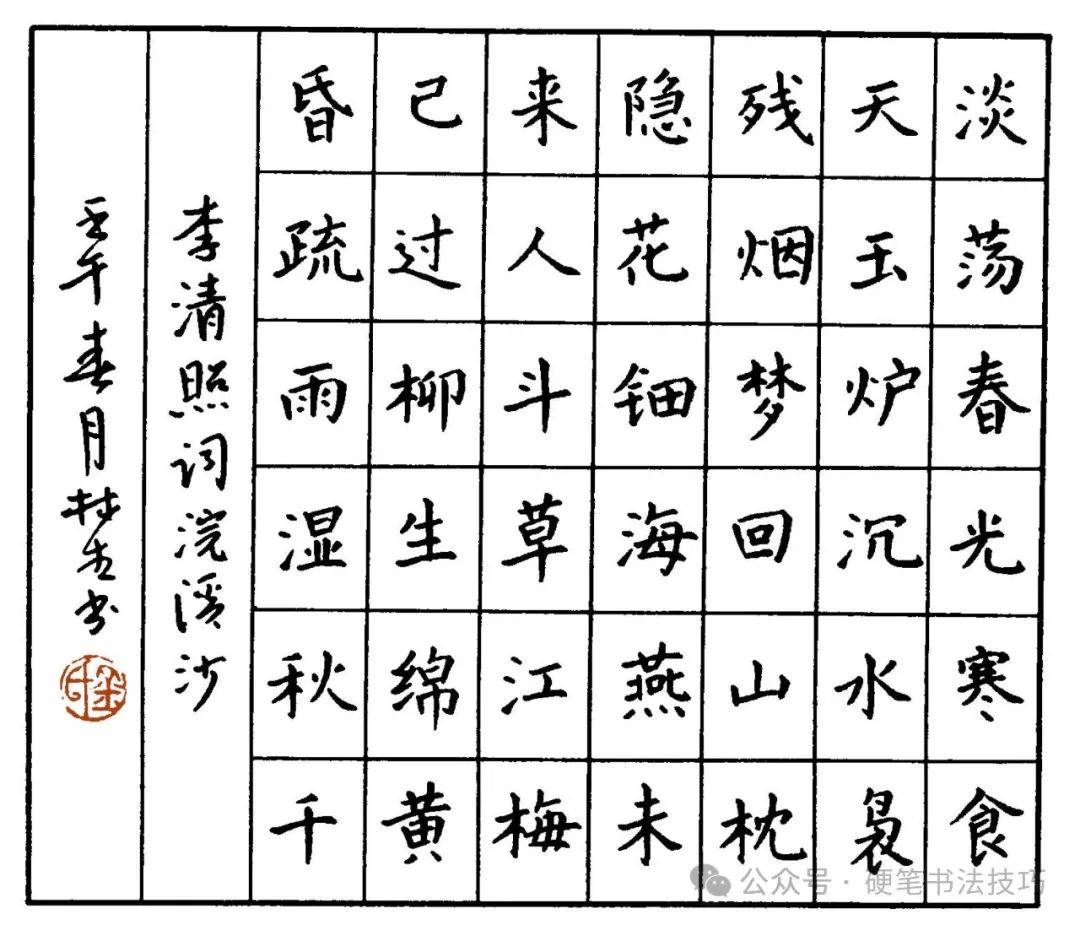 淡荡春光寒食
天玉炉沉水袅
残烟梦回山枕
隐花钿海燕未
来人斗草江梅
已过柳生绵黄
昏疏雨湿秋千
李清照词浣溪沙
壬午春月林书
公众号·硬笔书法技巧